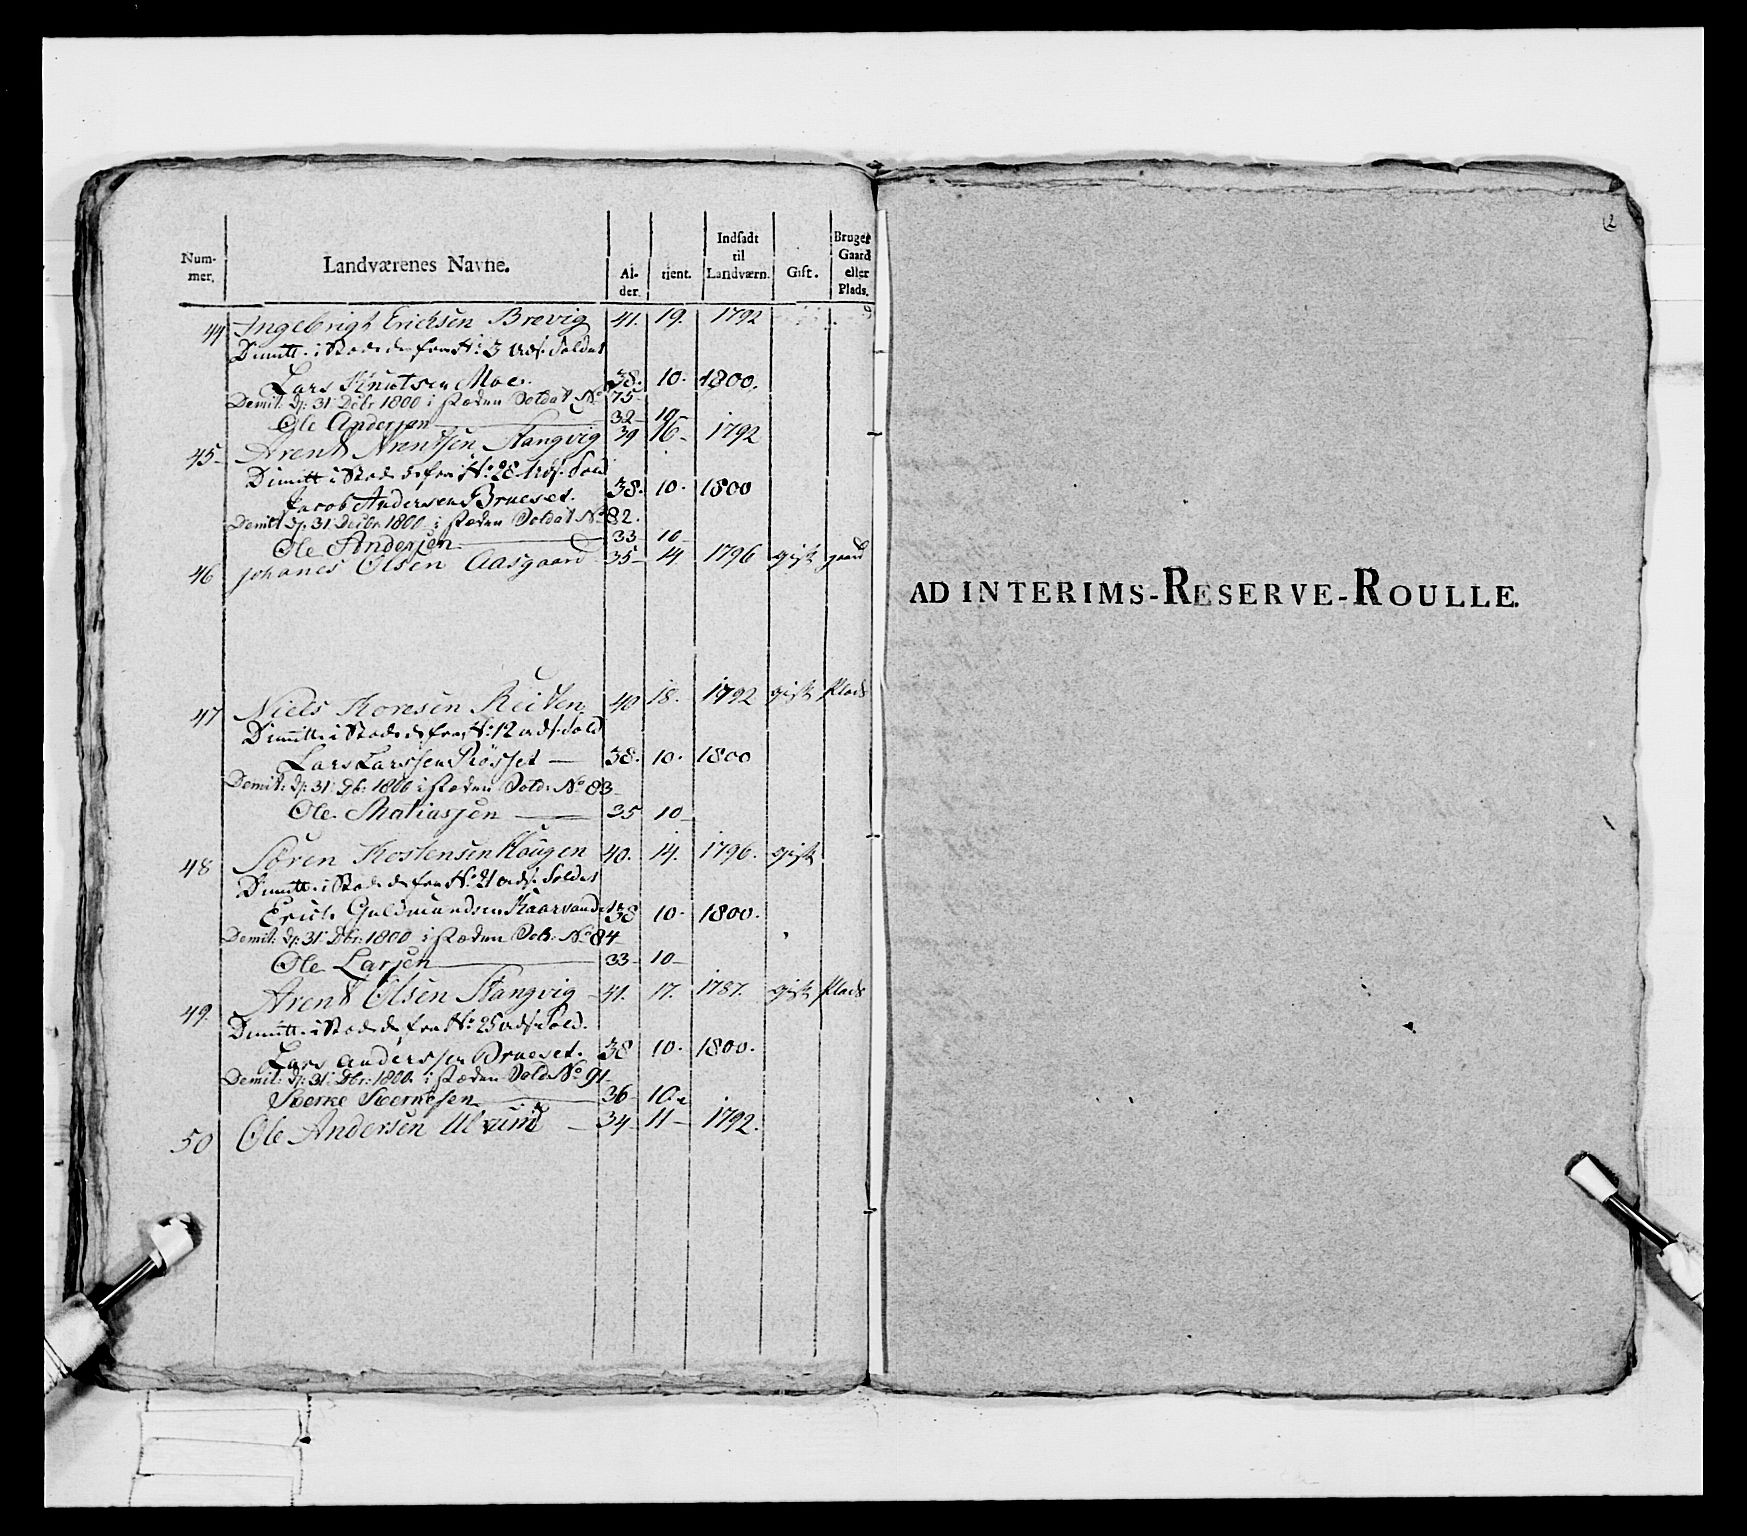 Num-
mer.
Landværenes Navne.
Al-
der.
tient.
Indsadt
til
Landværn.
Gift.
Bruger
Gaard
eller
Plads.
44 Ingebrigt Ericksen Brevig 41. 19. 1792
Dimitt. i Stæde fra No: 3 Udf. Soldat
Lars Knutsen Moe. 38. 10. 1800.
Demit: d: 31 Debr 1800 i stæden Soldat No 75-
Ole Andersen 32 10
45- Arent Arentsen Stangvig 39 16- 1792
Dimitt i Stæde fra No: 28 Udf. Sold
Jacob Andersen Brueset. 38. 10. 1800
Demit d: 31 Decbr 1800 i stæden Soldat No 82.
Ole Andersen 33 10-
46 Johanes Olsen Aasgaard 35- 14 1796 gift gaard
47 Niels Toresen Reiten 40 18. 1792 gift Plads
Dimitt. i Stæde fra No: 12 udf. Sold
Lars Larssen Røsset 38. 10. 1800
Demit: d: 31 Dbr: 1800 i stæden Sold: No 83-
Ole Mathiassen 35 10-
48 Søren Tostensen Haugen 40. 14. 1796. gift
Dimitt. i Stæde fra No: 21 udf. Soldat
Erich Guldmundsen Kaarvandet 38 10. 1800.
Demit: d: 31 Dbr: 1800 i stæden Sol: No 84-
Ole Larsen 33 10-
49. Arent Olsen Stangvig 41. 17. 1787. gift Plads
Dimitt. i Stæde fra No: 25 udf. Sold.
Lars Anderssen Brueset. 38 10. 1800.
Demit: d: 31 Dbr: 1800. i stæden Sold No 91-
36 10
50 Ole Andersen Ulvund 34- 11- 1792.
2
AD INTERIMS-RESERVE-ROULLE.